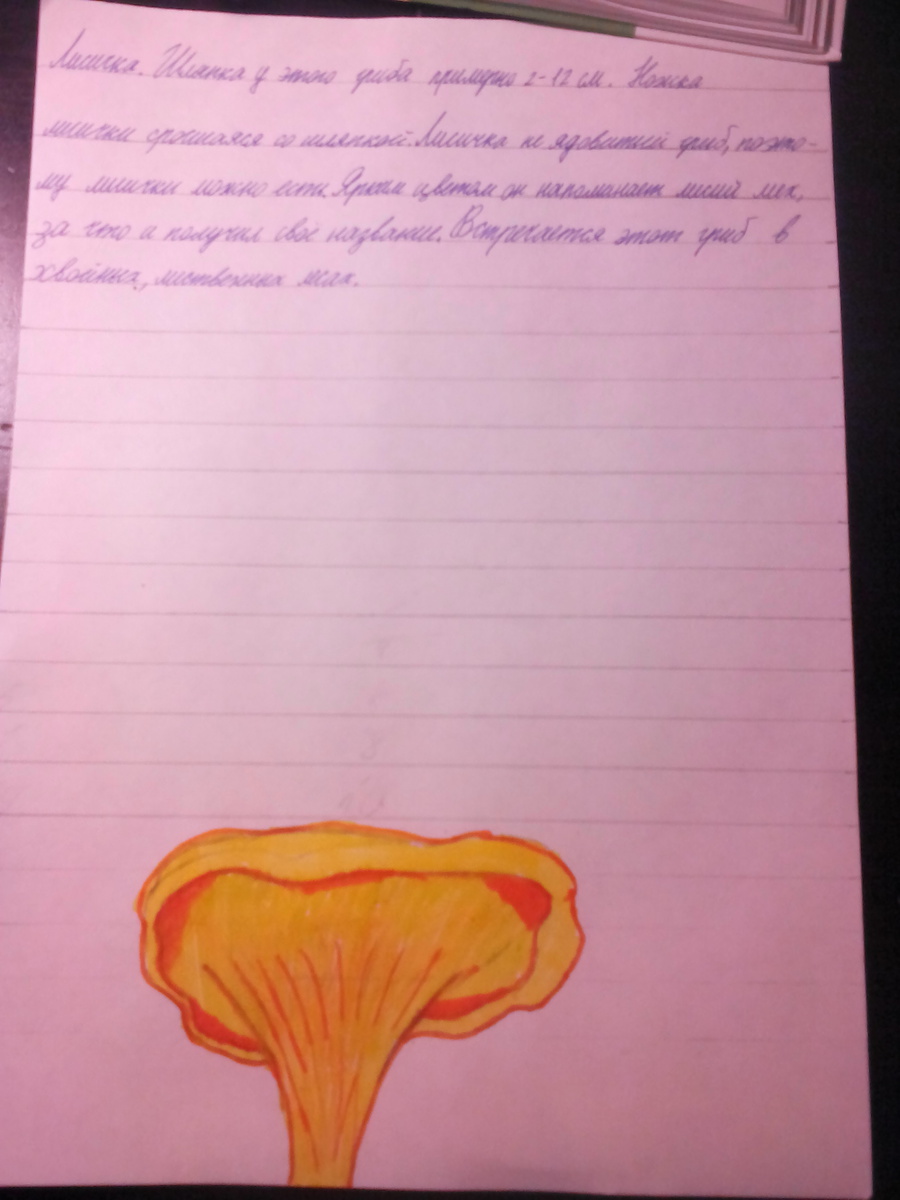 Лисичка. Шляпка у этого гриба примерно 2-12 см. Ножка
лисички сросшаяся со шляпкой. Лисичка не ядовитый гриб, поэто-
му лисички можно есть. Ярким цветом он напоминает лисий мех,
за что и получил своё название. Встречается этот гриб в
хвойных, лиственных лесах.